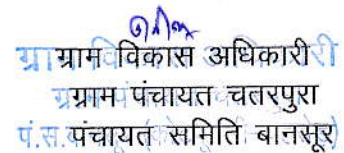 ग्राम विकास अधिकारी
ग्राम पंचायत चतरपुरा
पंचायत समिति बानसूर